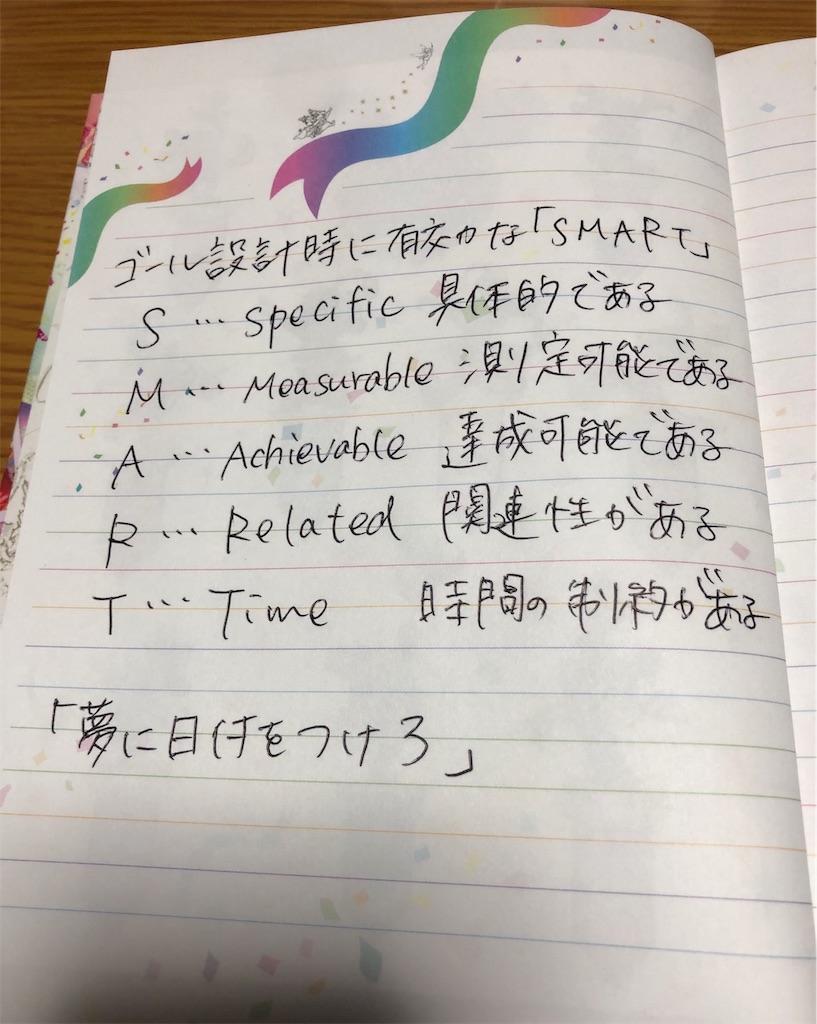 ゴール設計時に有効な「SMART」
S … Specific 具体的である
M … Measurable 測定可能である
A … Achievable 達成可能である
R … Related 関連性がある
T … Time 時間の制約がある
「夢に日付をつけろ」